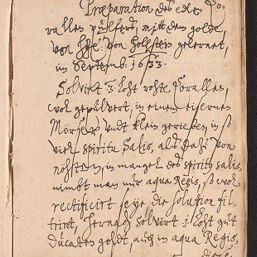 Præparation deß edlen Co-
rallen pulfers, mitt dem goldt
von H. von Holstein gelernet,
im Septemb. 1633.
Solvirt 3 Loht rohte Corallen,
wol gepulvert, in einem eisernen
Mörser undt klein gerieben, in so
viel spiritu Salis, alß daß von
nöhten, in mangel deß spiritus salis,
nimbt man nur aqua Regis, so wol
rectificirt seye die solution fil-
trirt, hernach solvirt 1 Loht gut
ducaten goldt, auch in aqua Regis,